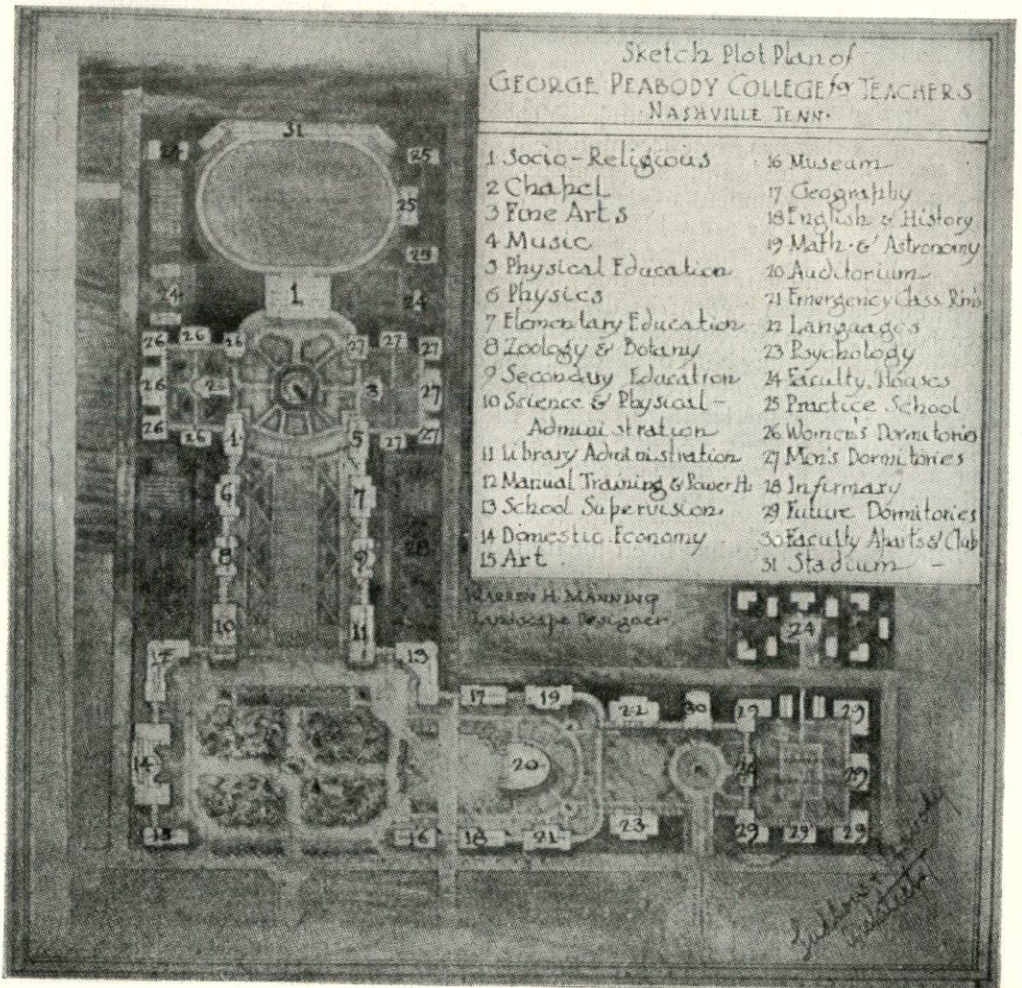 Sketch Plot Plan of
GEORGE PEABODY COLLEGE for TEACHERS
· NASHVILLE TENN ·
1 Socio-Religious
2 Chapel
3 Fine Arts
4 Music
5 Physical Education
6 Physics
7 Elementary Education
8 Zoology & Botany
9 Secondary Education
10 Science & Physical -
Administration
11 Library Administration
12 Manual Training & Power H.
13 School Supervision
14 Domestic Economy
15 Art
16 Museum
17 Geography
18 English & History
19 Math. & Astronomy
20 Auditorium
21 Emergency Class Rms
22 Languages
23 Psychology
24 Faculty Houses
25 Practice School
26 Women's Dormitories
27 Men's Dormitories
28 Infirmary
29 Future Dormitories
30 Faculty Aparts & Club
31 Stadium -
WARREN H. MANNING
Landscape Designer
31
24 25
25
25
1
24 24
26 26 26 27 27 27
26 2 3 27
26 26 4 5 27 27
6 7
8 9 28
10 11
12 13
24
17 19 22 30 29 29
14 20 29
15 16 18 21 23 29 29 29
Ludlow & Peabody